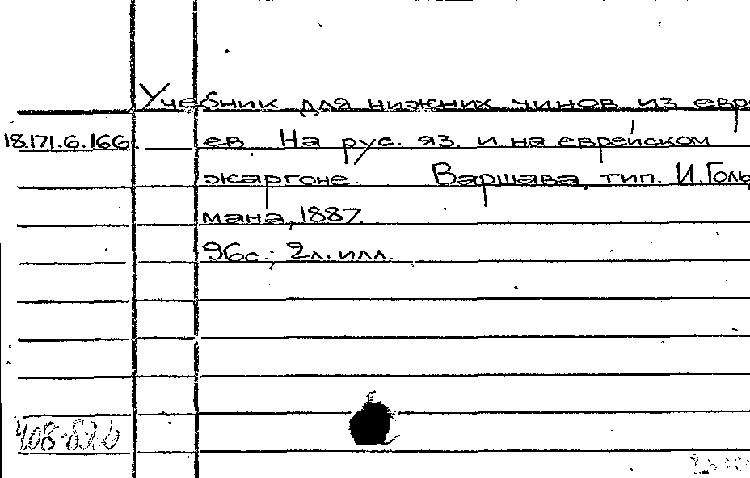 Учебник для нижних чинов из евре
18.171.6.166. ев На рус. яз. и на еврейском
жаргоне. Варшава, тип. И. Голь
мана, 1887.
96с.; 2л. илл.